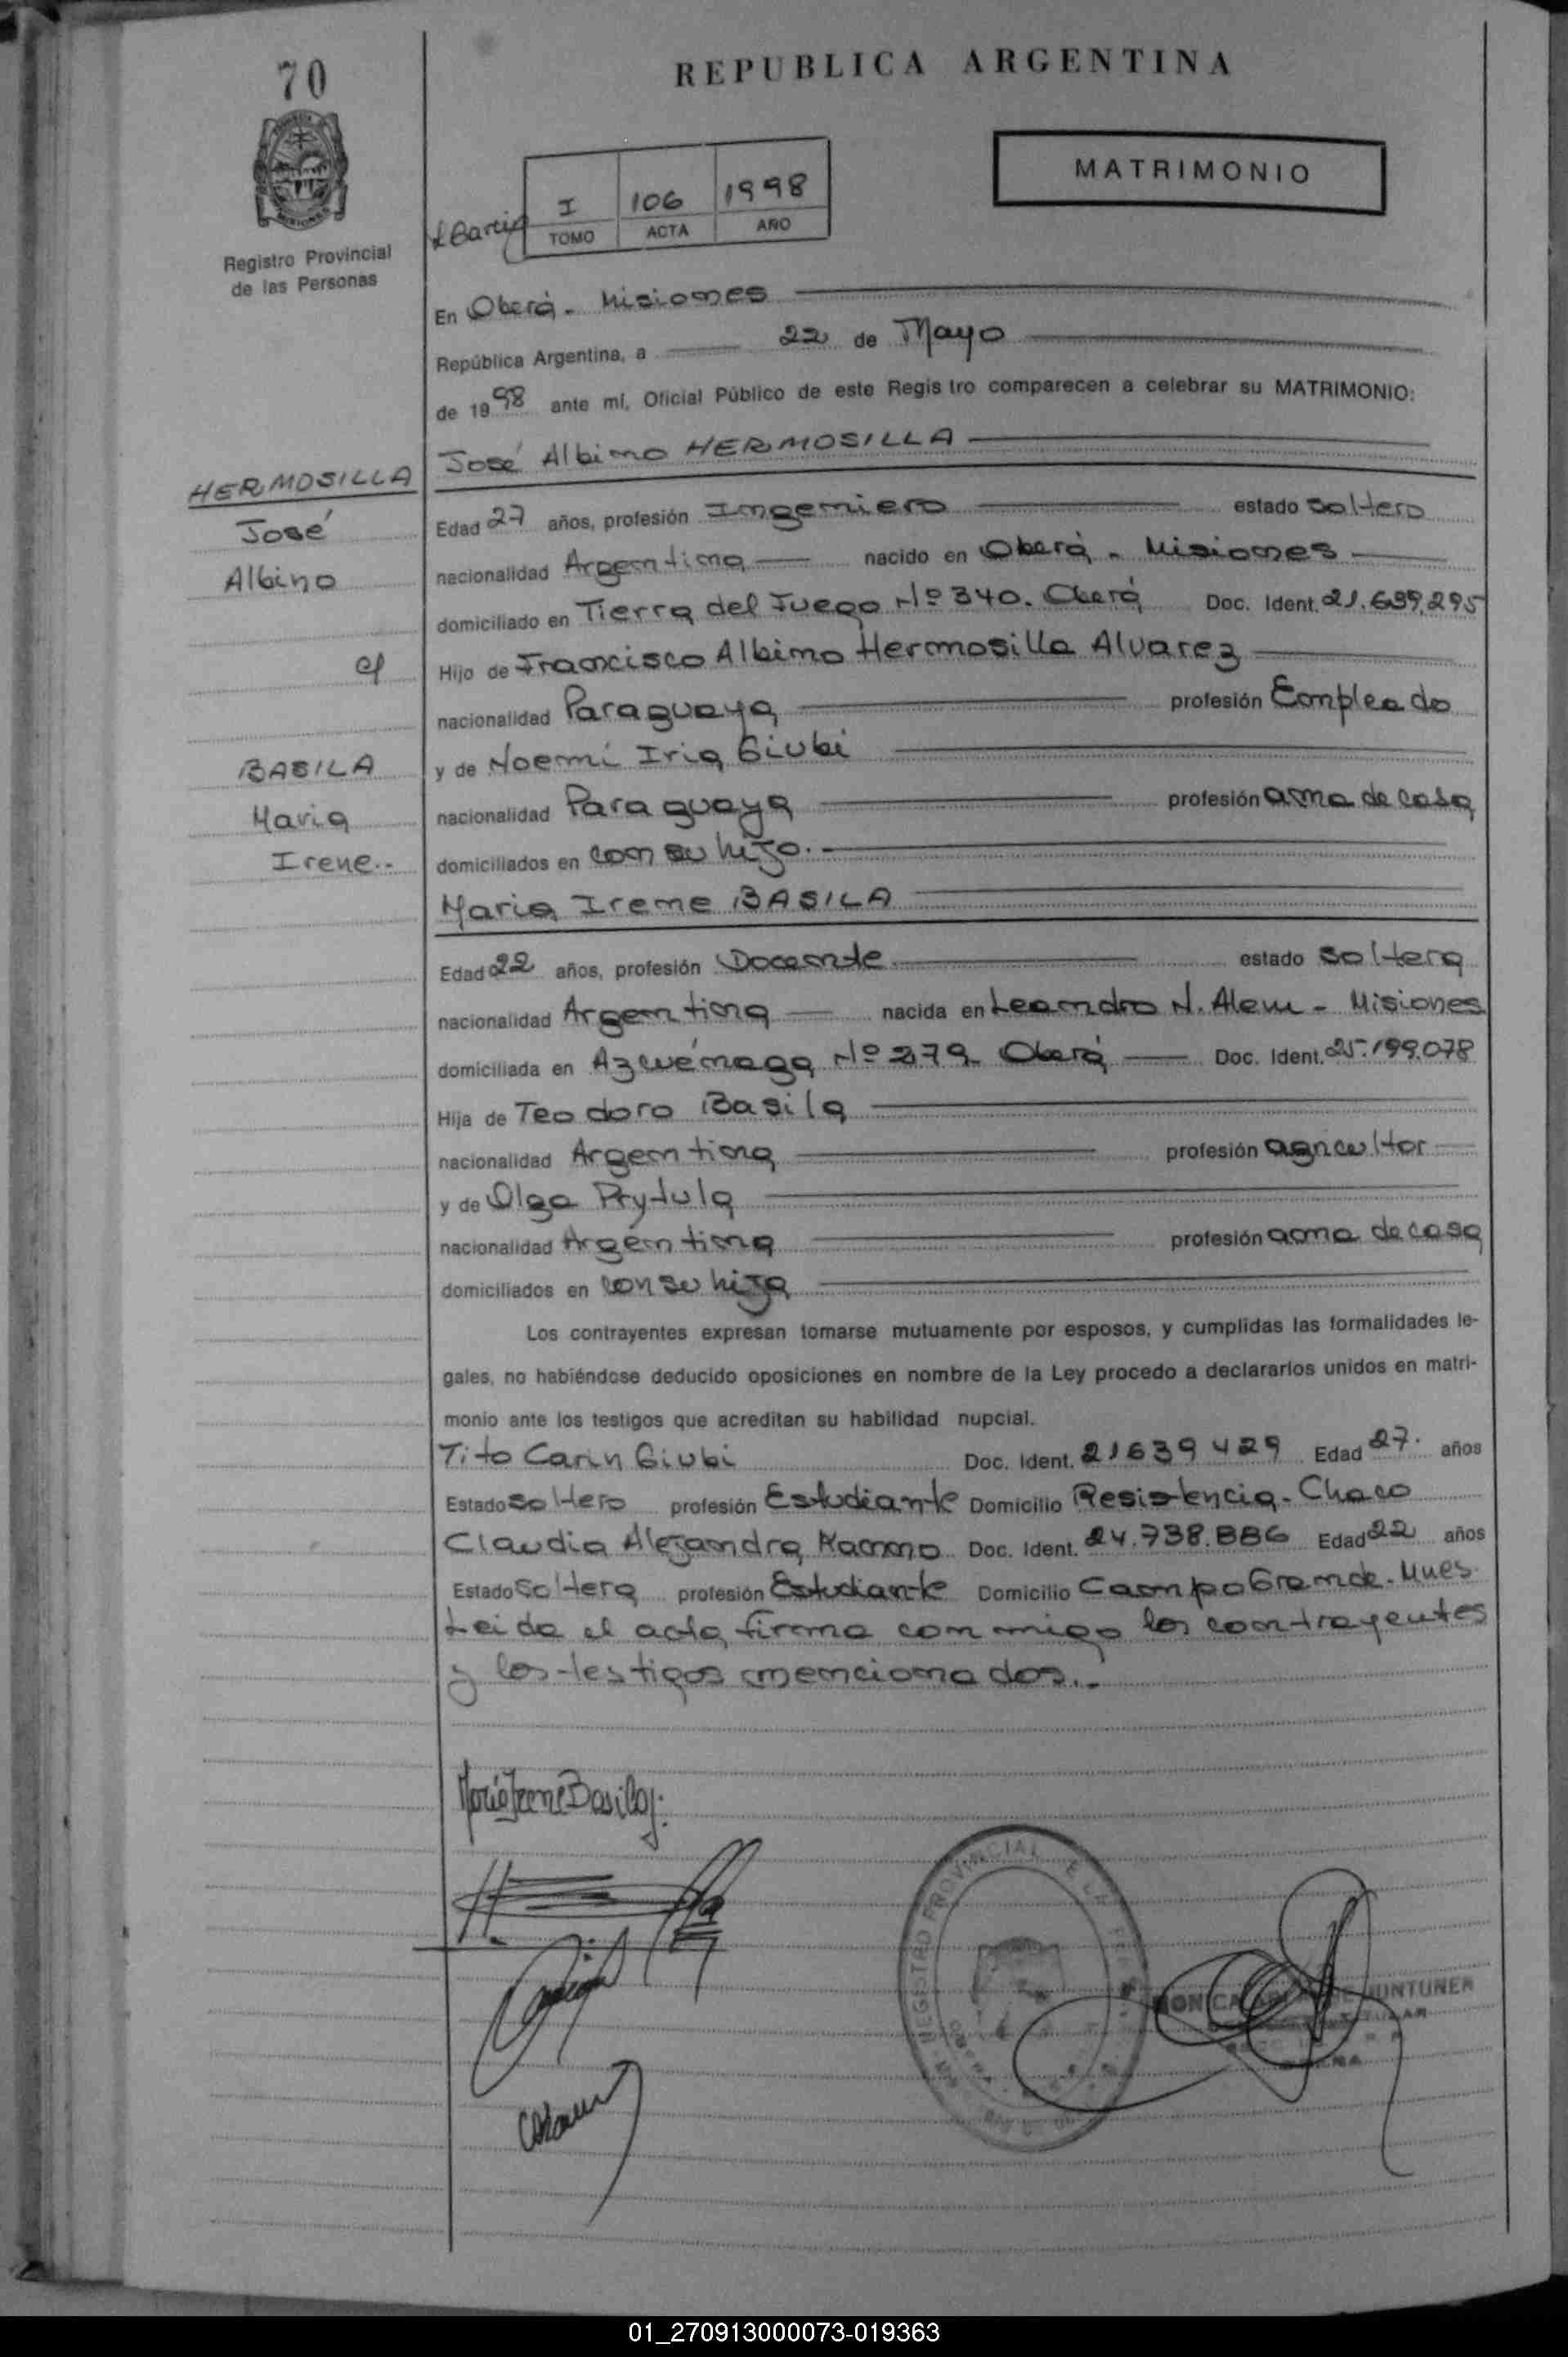 70
REPUBLICA ARGENTINA
MATRIMONIO
I 106 1998
TOMO ACTA AÑO
Registro Provincial
de las Personas
En Oberá - Misiones
República Argentina, a 22 de Mayo
de 1998 ante mí, Oficial Público de este Regis tro comparecen a celebrar su MATRIMONIO:
José Albino HERMOSILLA
HERMOSILLA
José
Albino
c/
BASILA
Maria
Irene.-
Edad 27 años, profesión Ingeniero estado Soltero
nacionalidad Argentina nacido en Oberá - Misiones
domiciliado en Tierra del Fuego Nº 340. Oberá Doc. Ident. 21.639.295
Hijo de Francisco Albino Hermosilla Alvarez
nacionalidad Paraguaya profesión Empleado
y de Noemí Iria Giubi
nacionalidad Paraguaya profesión ama de casa
domiciliados en con su hijo.-
Maria Irene BASILA
Edad 22 años, profesión Docente estado Soltera
nacionalidad Argentina nacida en Leandro N. Alem - Misiones
domiciliada en Azcuénaga Nº 279 - Oberá Doc. Ident. 25.199.078
Hija de Teodoro Basila
nacionalidad Argentina profesión agricultor
y de Olga Prytula
nacionalidad Argentina profesión ama de casa
domiciliados en con su hija
Los contrayentes expresan tomarse mutuamente por esposos, y cumplidas las formalidades le-
gales, no habiéndose deducido oposiciones en nombre de la Ley procedo a declararlos unidos en matri-
monio ante los testigos que acreditan su habilidad nupcial.
Tito Carin Giubi Doc. Ident. 21639429 Edad 27 años
Estado Soltero profesión Estudiante Domicilio Resistencia - Chaco
Claudia Alejandra Doc. Ident. 24.738.886 Edad 22 años
Estado Soltera profesión Estudiante Domicilio Campo Grande - Mnes
Leida el acta firma conmigo los contrayentes
y los testigos mencionados.-
Maria Irene Basila
REGISTRO PROVINCIAL DE LAS
01_270913000073-019363